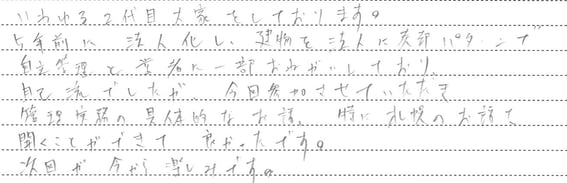 いわゆる2代目大家をしております。
5年前に法人化し、建物を法人に売却パターンで
自主管理と業者に一部おねがいしており
自己流でしたが、今回参加させていただき
管理実務の具体的なお話、特に札幌のお話を
聞くことができて良かったです。
次回が今から楽しみです。